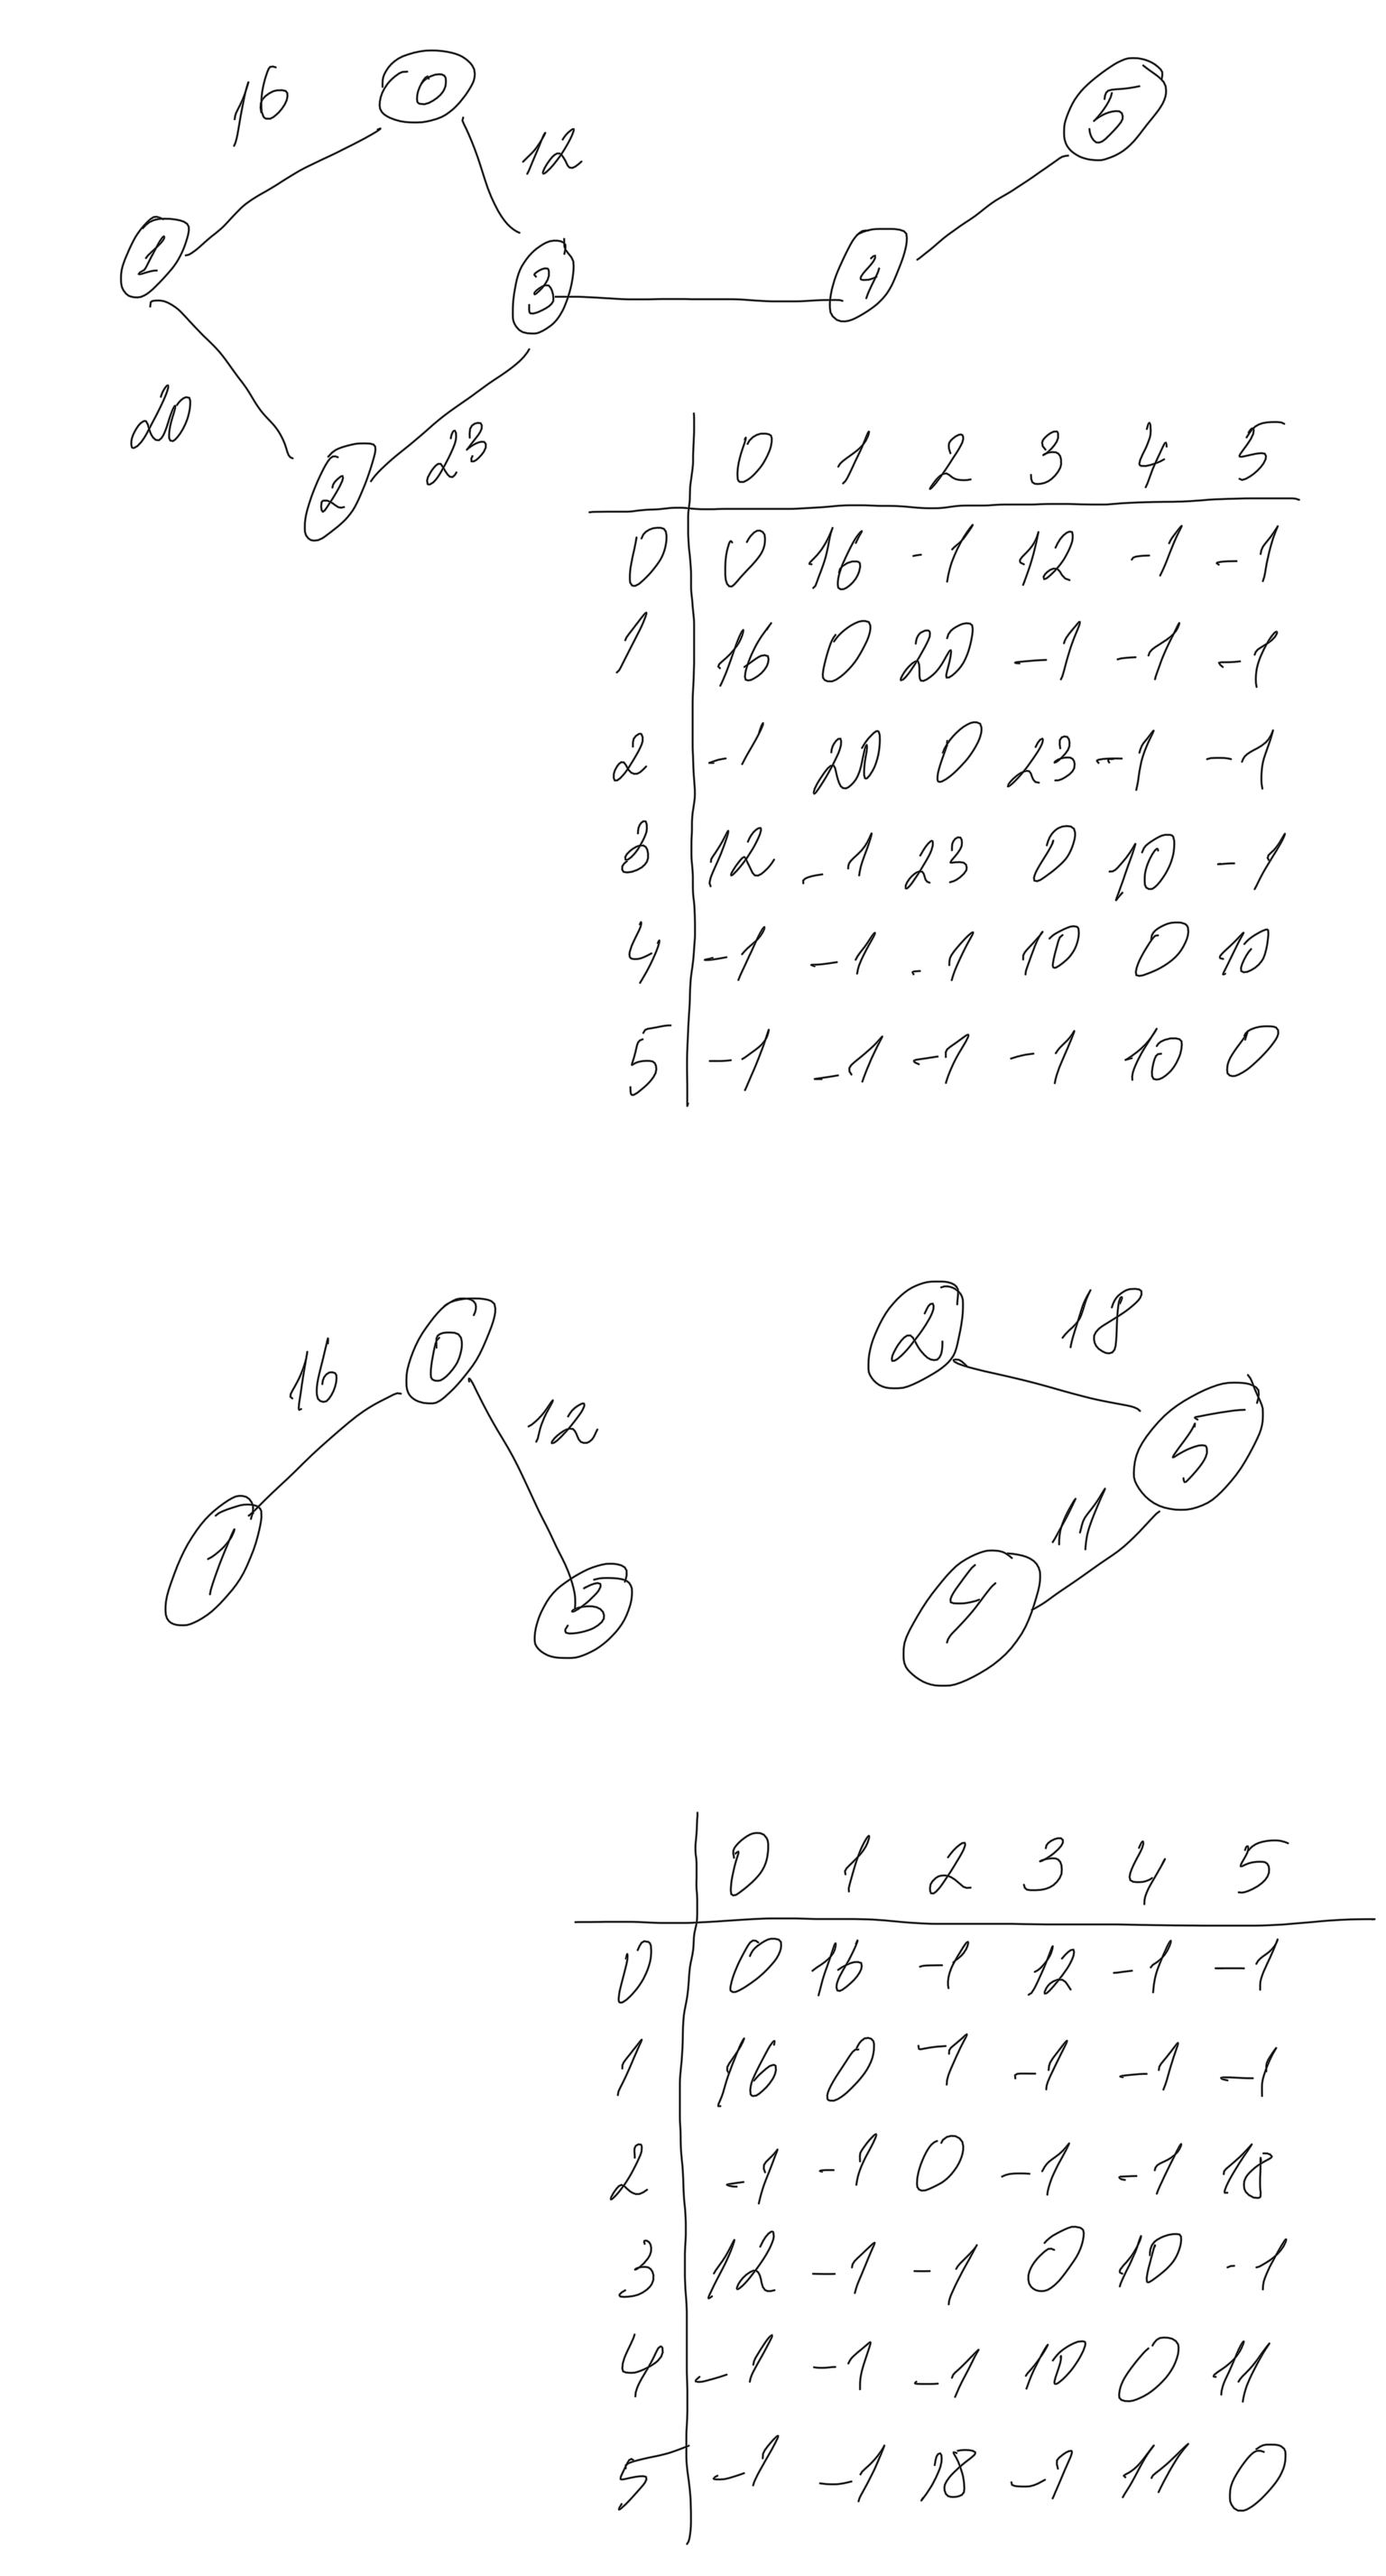 16 0 12 5
1 3 4
20 2 23
0 1 2 3 4 5
0 0 16 -1 12 -1 -1
1 16 0 20 -1 -1 -1
2 -1 20 0 23 -1 -1
3 12 -1 23 0 10 -1
4 -1 -1 -1 10 0 10
5 -1 -1 -1 -1 10 0
16 0 12 2 18
1 3 4 11 5
0 1 2 3 4 5
0 0 16 -1 12 -1 -1
1 16 0 -1 -1 -1 -1
2 -1 -1 0 -1 -1 18
3 12 -1 -1 0 10 -1
4 -1 -1 -1 10 0 11
5 -1 -1 18 -1 11 0